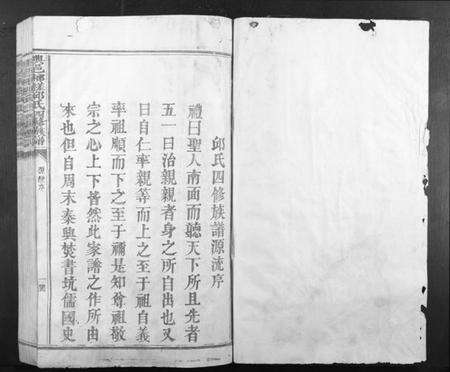 邱氏四修族譜源流序
禮曰聖人南面而聽天下所且先者
五一曰治親親者身之所自出也又
曰自仁率親等而上之至于祖自義
率祖順而下之至于禰是知尊祖敬
宗之心上下皆然此家譜之作所由
來也但自周末秦興焚書坑儒國史
邱氏四修族譜
源流序